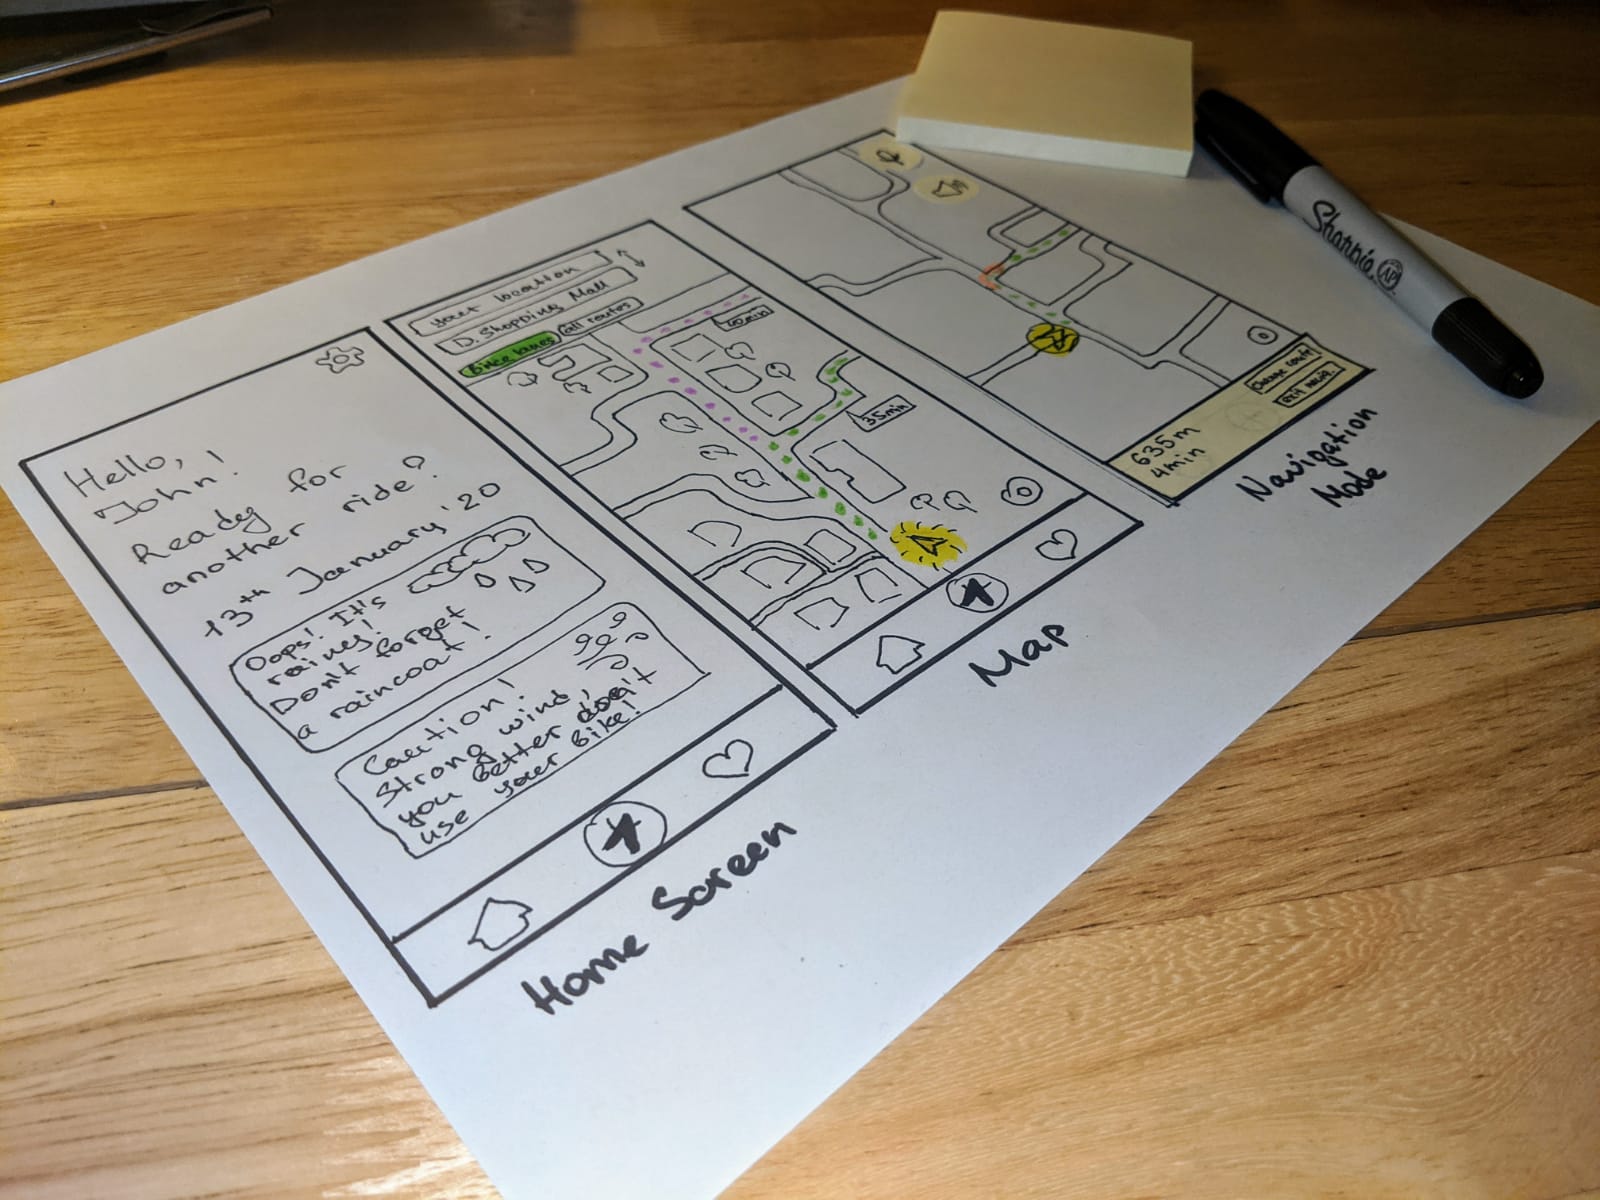 Hello,
John!
Ready for
another ride?
13th January '20
Oops! It's
rainy!
Don't forget
a raincoat!
Caution!
Strong wind,
you better don't
use your bike!
Home Screen
your location
D. Shopping Mall
Bike lanes
all routes
40min
35min
Map
635m
4min
Change route
exit navig.
Navigation
Mode
Sharpie
AP